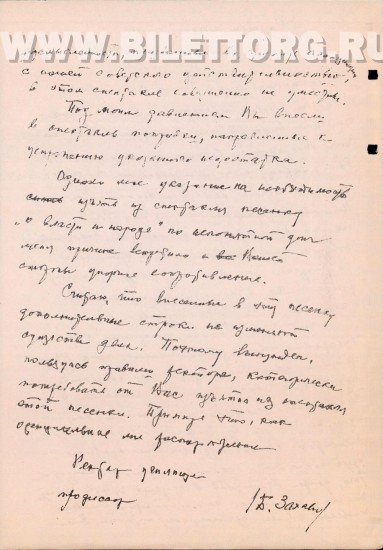 WWW.BILETTORG.RU
с нашей советской действительностью,
в этом спектакле совершенно не уместны.
Под моим давлением Вы внесли
в спектакль поправки, направленные к
устранению указанного недостатка.
Однако мое указание на необходимость
изъять из спектакля песенку
"о власти и народе" по непонятной для
меня причине встретило с Вашей
стороны упорное сопротивление.
Считаю, что внесенные в эту песенку
дополнительные строки не изменяют
существа дела. Поэтому вынужден,
пользуясь правами ректора, категорически
потребовать от Вас изъятия из спектакля
этой песенки. Примите это, как
официальное мое распоряжение.
Ректор училища
профессор /Б. Захава/